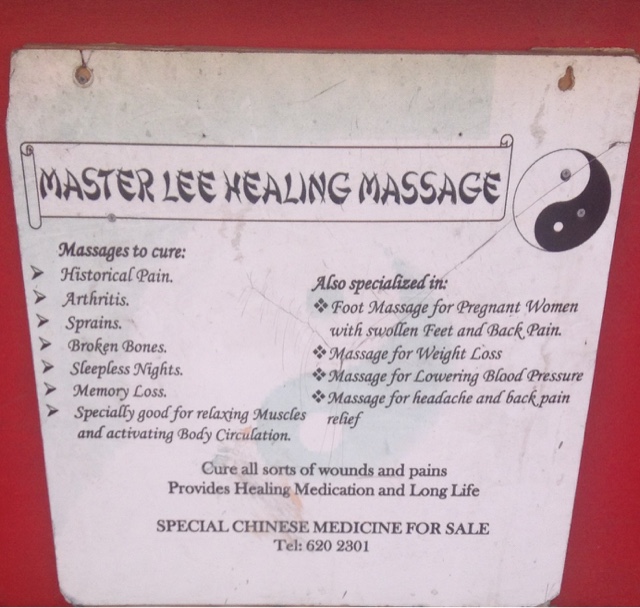 MASTER LEE HEALING MASSAGE
Massages to cure:
Historical Pain.
Arthritis.
Sprains.
Broken Bones.
Sleepless Nights.
Memory Loss.
Specially good for relaxing Muscles
and activating Body Circulation.
Also specialized in:
Foot Massage for Pregnant Women
with swollen Feet and Back Pain.
Massage for Weight Loss
Massage for Lowering Blood Pressure
Massage for headache and back pain
relief
Cure all sorts of wounds and pains
Provides Healing Medication and Long Life
SPECIAL CHINESE MEDICINE FOR SALE
Tel: 620 2301